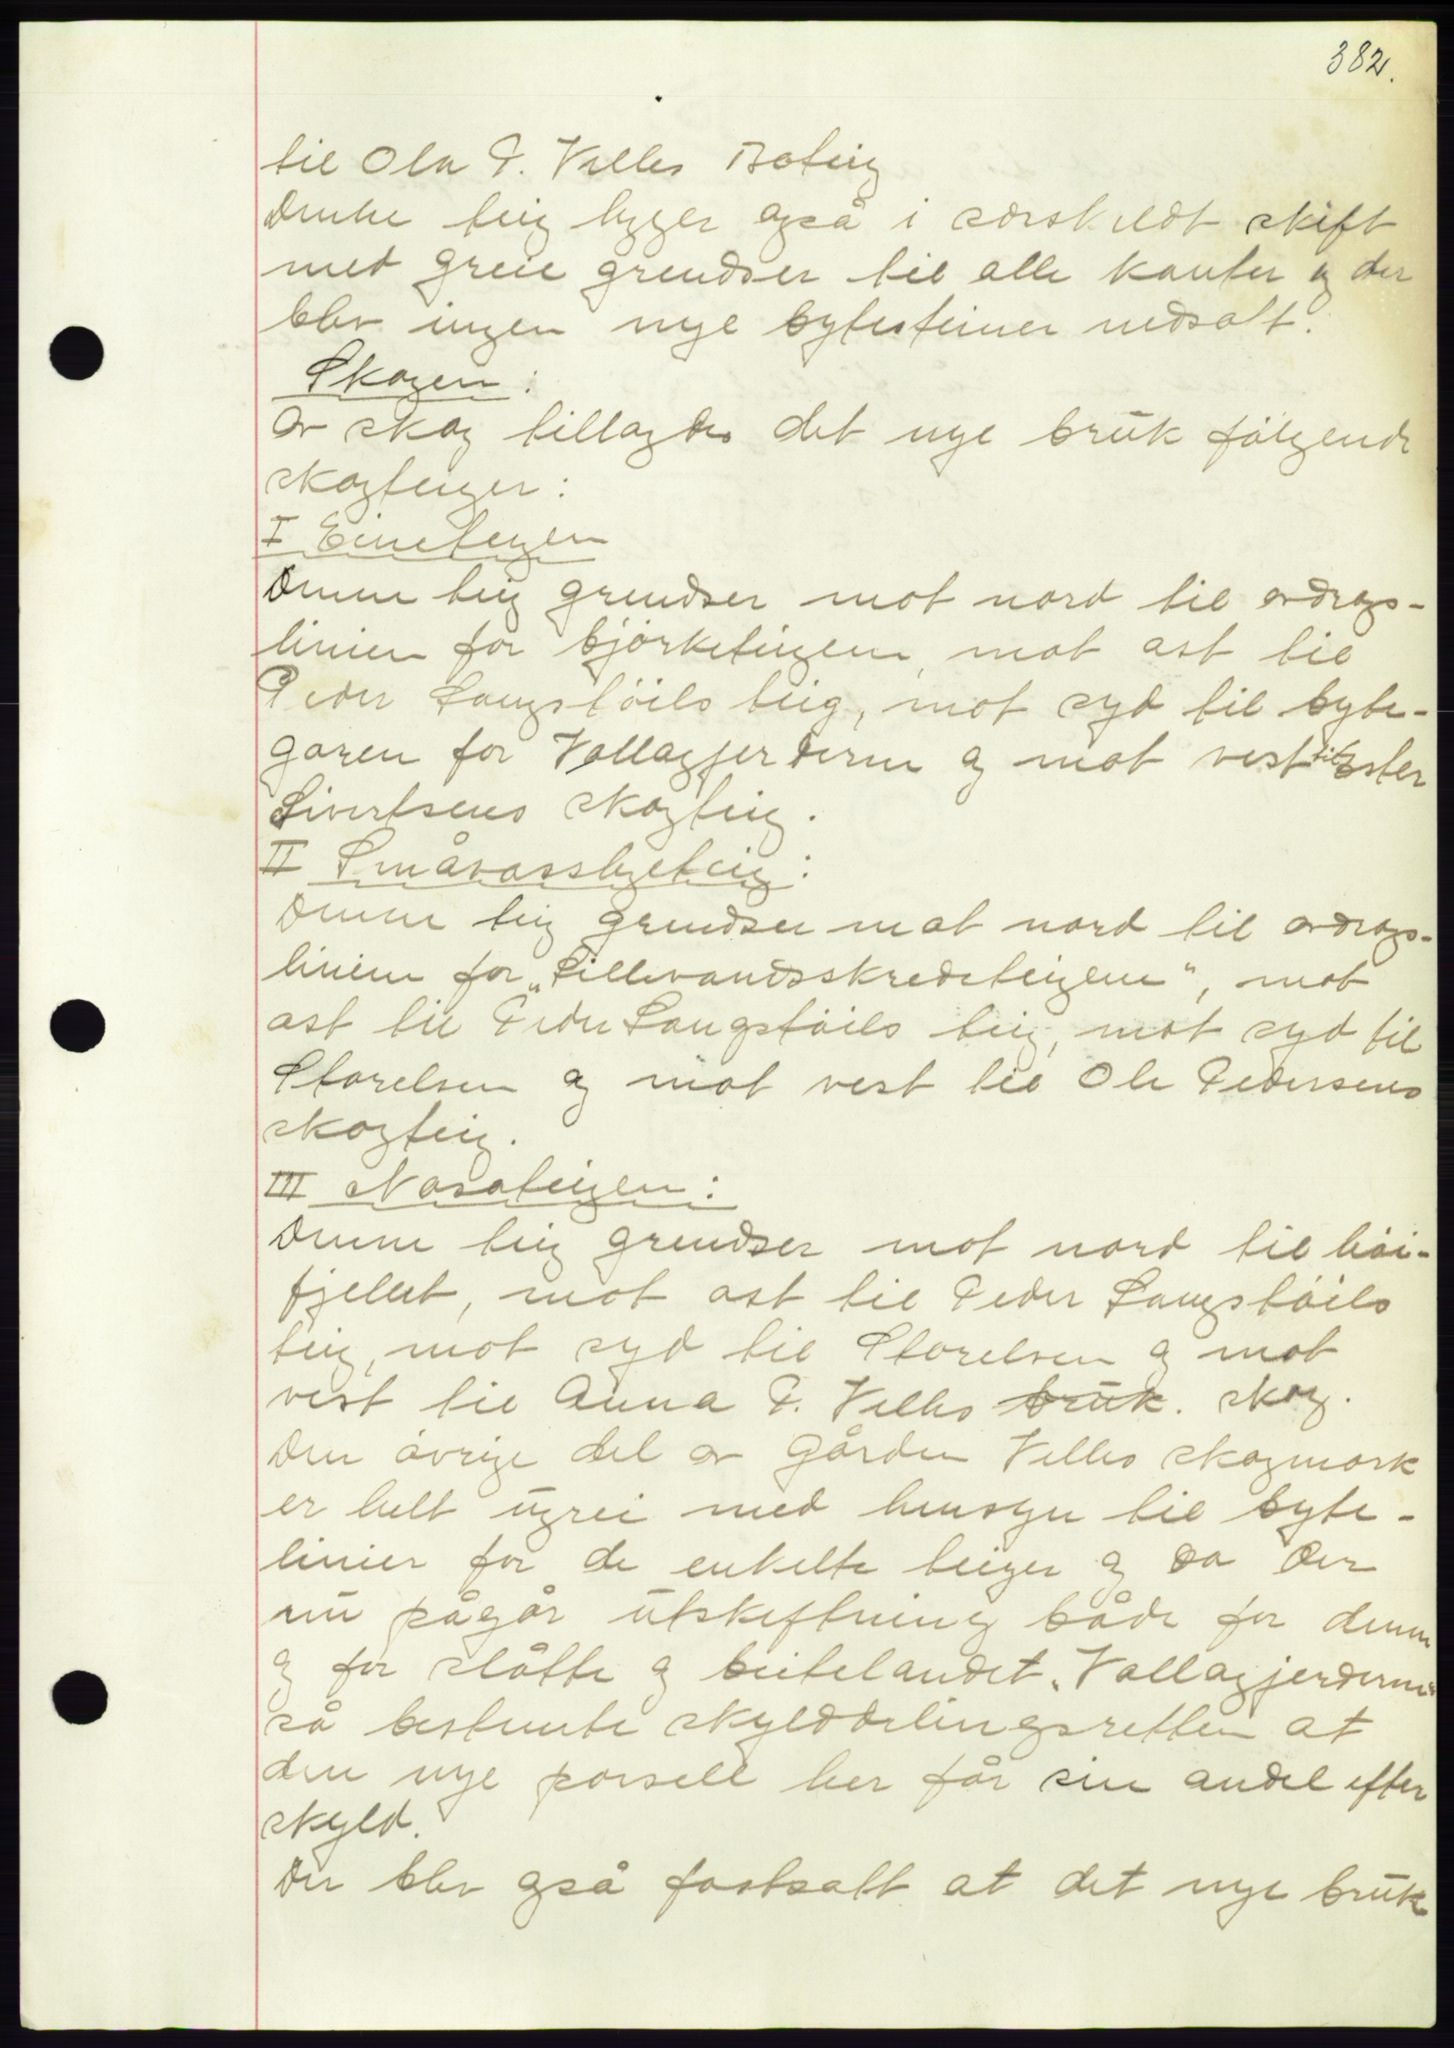 382.
til Ola P. Velles Boteig
Denne teig lygger også i særskildt skift
med greie grendser til alle kanter og der
blev ingen nye bytesteiner nedsatt.
Skogen:
Av skog tillagdes det nye brük følgende
skogteiger:
I Eineteigen
Denne teig grendser mot nord til avdrags-
linien for bjørketeigene, mot ost til
Peder Langstøils teig, mot syd til byte-
garen for Vollagjerderne og mot vest til Ester
Sivertsens skogteig.
II
Denne teig grendser mot nord til avdrags-
linien for „Lillevandsskredeteigene", mot
ost til Peder Langstøils teig, mot syd til
Storelven og mot vest til Ole Pedersens
skogteig.
III Nasateigen:
Denne teig grendser mot nord til høi-
fjellet, mot ost til Peder Langstøils
teig, mot syd til Storelven og mot
vest til Anna P. Velles brük. skog.
Den øvrige del av gården Velles skogmark
er helt ügrei med hensyn til byte-
linier for de enkelte teiger og da der
nü pågår ütskiftning både for denne
og for slåtte og beitelandet „Vollagjerderne"
så bestemte skylddelingsretten at
den nye parsell her får sin andel efter
skyld.
Der blev også fastsatt at det nye brük